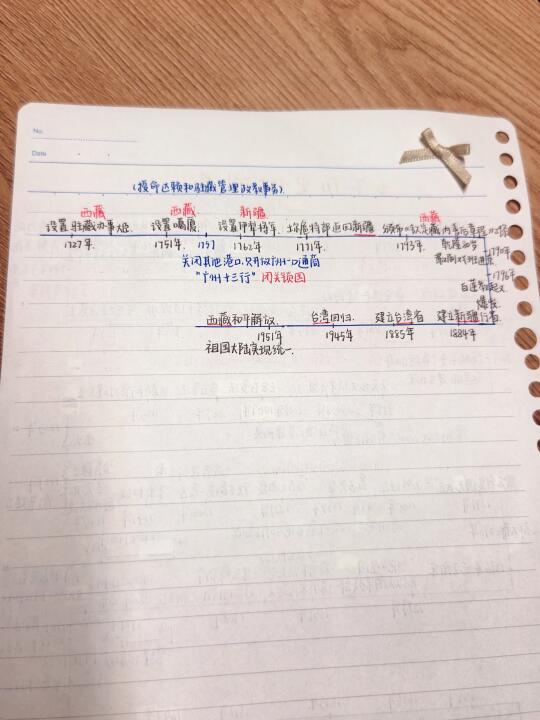 No.
Date
(授命达赖和驻藏管理政教事务)
西藏 西藏 新疆 西藏
设置驻藏办事大臣 设置噶厦 设置伊犁将军 土尔扈特部返回新疆 颁布《钦定藏内善后章程二十九条
1727年 1751年 1757 1762年 1771年 1793年
关闭其他港口,只开放广州一口通商
"广州十三行" 闭关锁国
1796年
白莲教起义
爆发
西藏和平解放 台湾回归 建立台湾省 建立新疆行省
1951年 1945年 1885年 1884年
祖国大陆实现统一